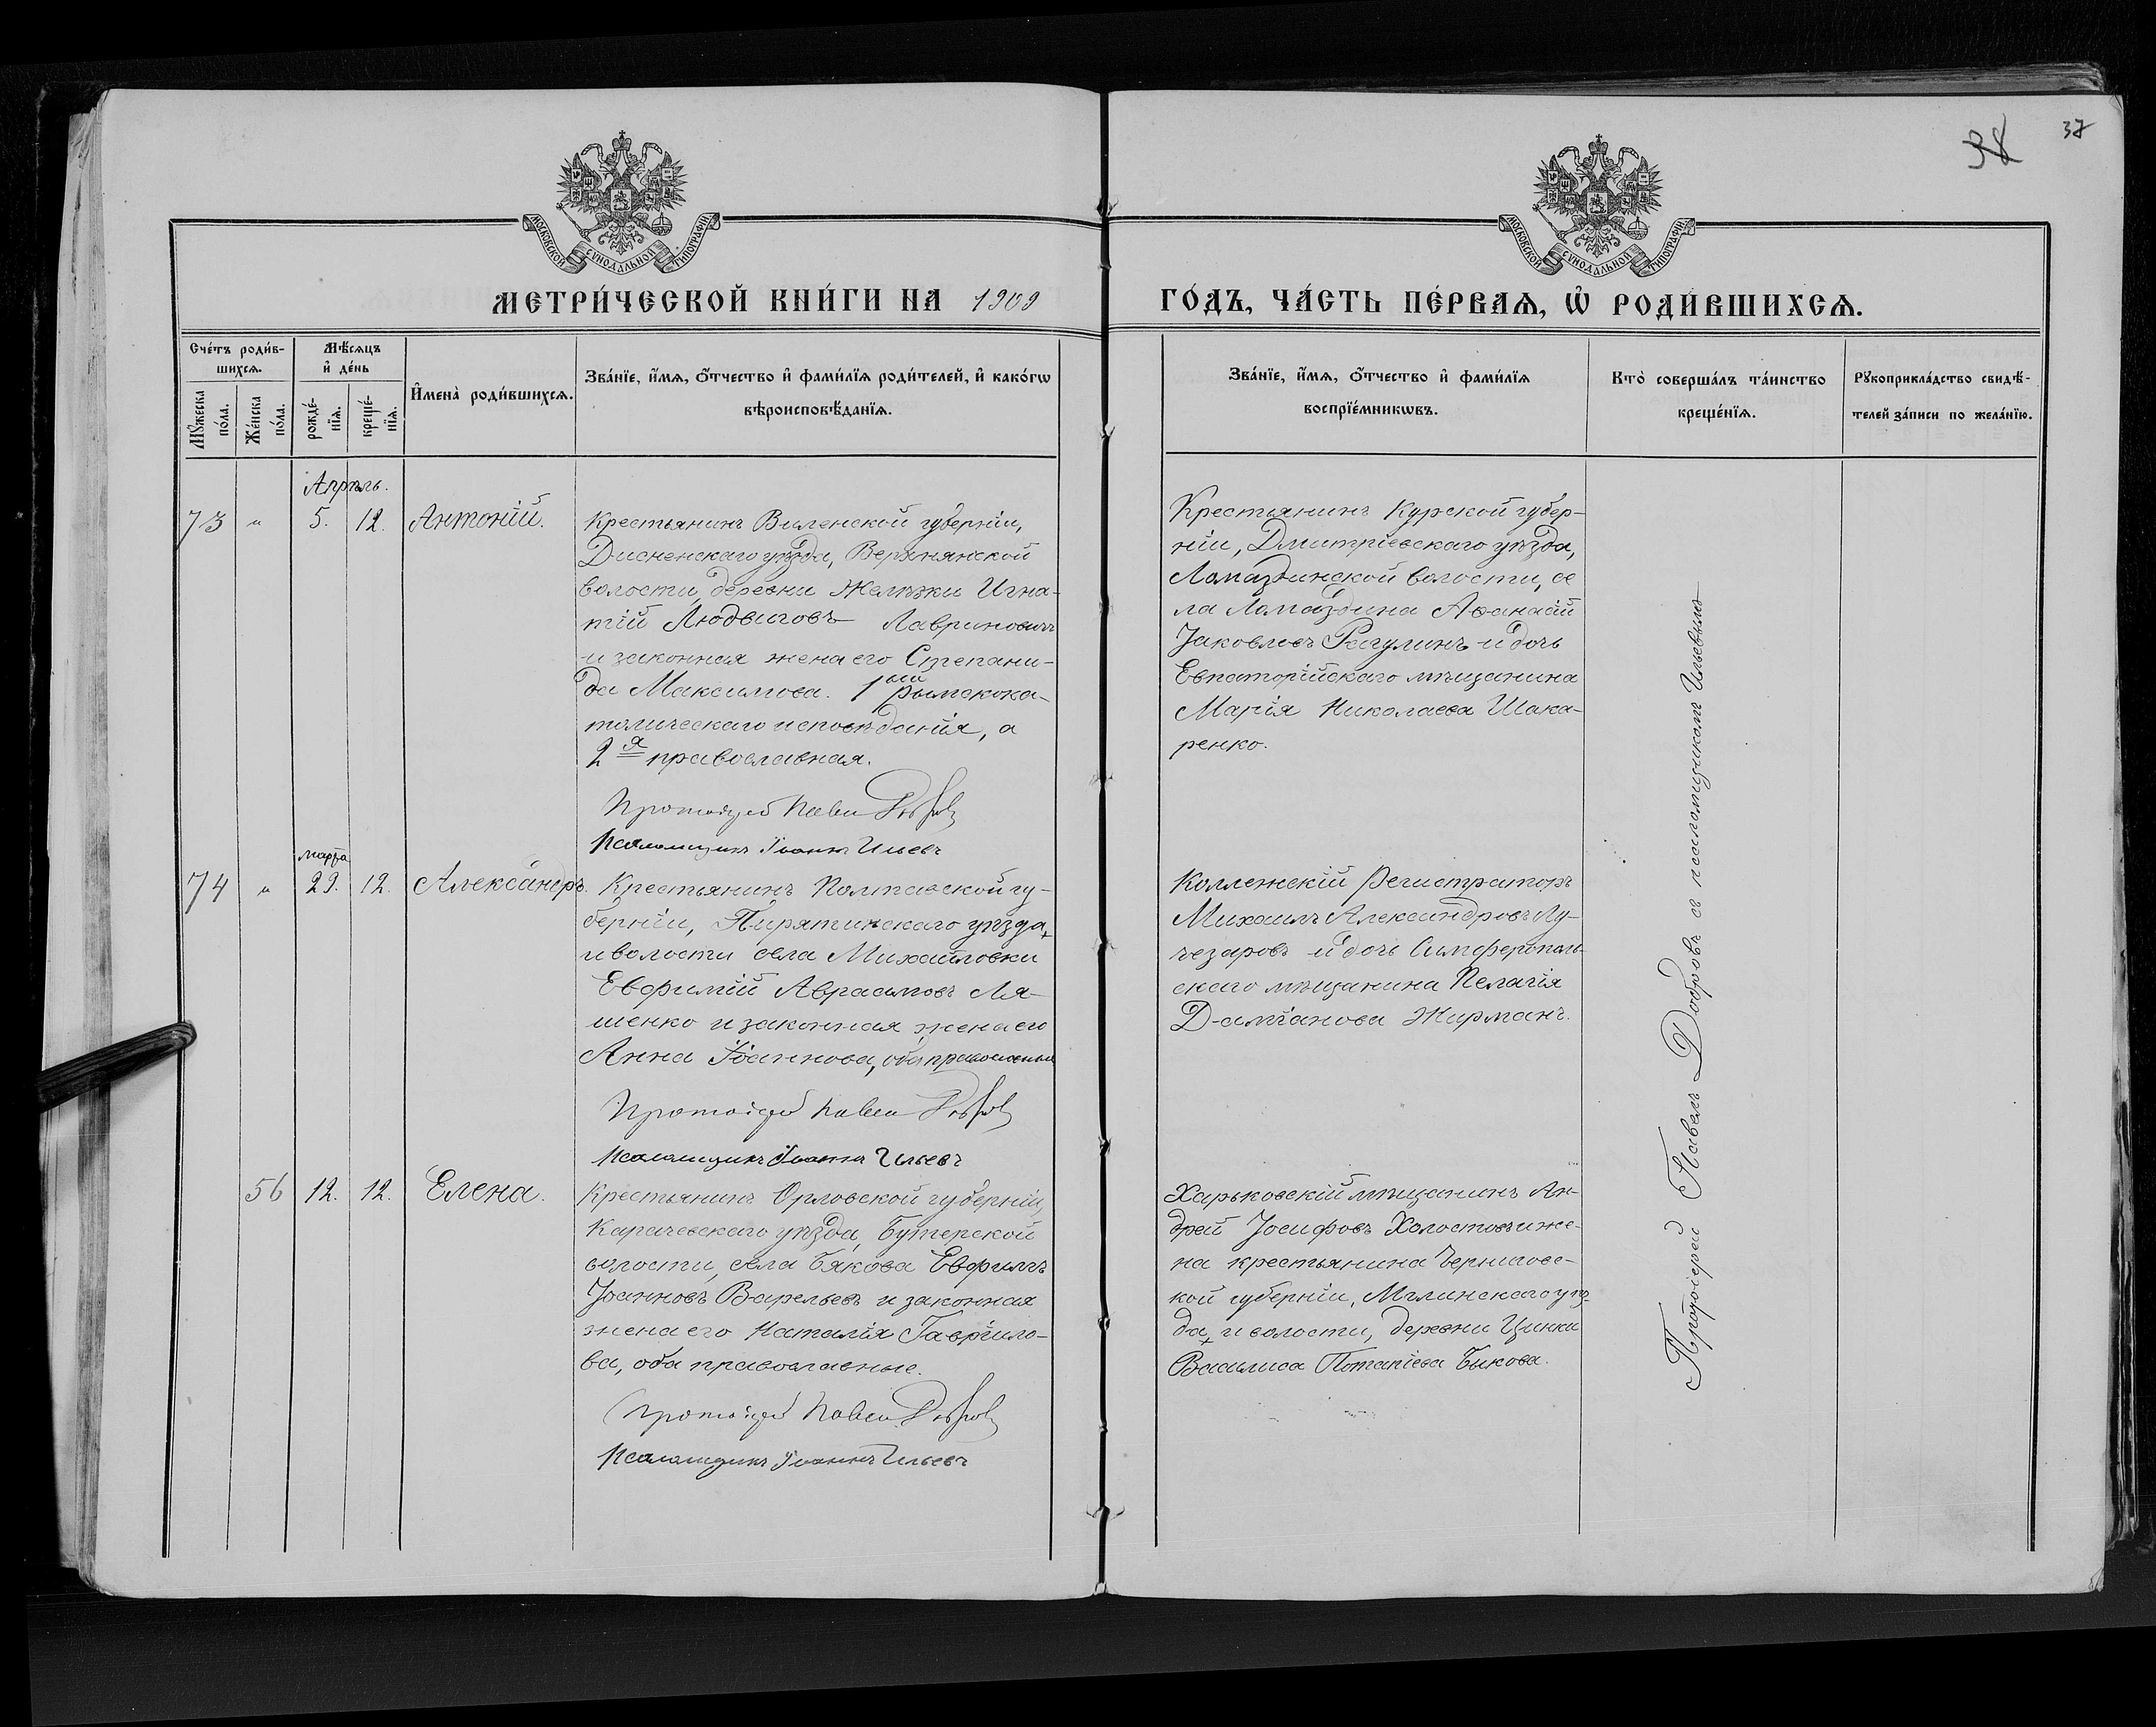 38 37
МОСКОВСКОЙ СѴНОДАЛЬНОЙ ТИПОГРАФІИ
МОСКОВСКОЙ СѴНОДАЛЬНОЙ ТИПОГРАФІИ
МЕТРИ́ЧЕСКОЙ КНИ́ГИ НА 1909 ГО́ДЪ, ЧА́СТЬ ПЕ́РВАѦ, Ѡ҆ РОДИ́ВШИХСѦ.
Сче́тъ роди́в-
шихсѧ.
Мꙋ́жеска
по́ла.
Же́нска
по́ла.
Мѣ́сѧцъ
и҆ де́нь
рожде́-
нїѧ.
креще́-
нїѧ.
И҆мена̀ роди́вшихсѧ.
Зва́нїе, и҆́мѧ, ѻ҆́тчество и҆ фами́лїѧ роди́телей, и҆ како́гѡ
вѣроисповѣ́данїѧ.
Зва́нїе, и҆́мѧ, ѻ҆́тчество и҆ фами́лїѧ
воспрїе́мникѡвъ.
Кто̀ соверша́лъ та́инство
креще́нїѧ.
Рꙋкоприкла́дство свидѣ́-
телей за́писи по жела́нїю.
Апрѣль.
73 " 5. 12. Антоній.
Крестьянинъ Виленской губерніи,
Дисненскаго уѣзда, Верхнянской
волости, деревни Желѣзки Игна-
тій Людвиговъ Лавриновичъ
и законная жена его Степани-
да Максимова. 1ый римскока-
толическаго исповѣданія, а
2я православная.
Протоіерей Павелъ Добровъ
Псаломщикъ Іоаннъ Ильевъ
Крестьянинъ Курской губер-
ніи, Дмитріевскаго уѣзда,
Ломаздинской волости, се
ла Ломаздина Аѳанасій
Іаковлевъ Рагулинъ и дочь
Евпаторійскаго мѣщанина
Марія Николаева Шака-
ренко.
марта
74 " 29. 12. Александръ.
Крестьянинъ Полтавской гу-
берніи, Пирятинскаго уѣзда,
и волости села Михайловки
Евфимій Аврамовъ Ля-
шенко и законная жена его
Анна Іоаннова, оба православные
Протоіерей Павелъ Добровъ
Псаломщикъ Іоаннъ Ильевъ
Коллежскій Регистраторъ
Михаилъ Александровъ Лу-
чезаровъ и дочь Симферополь-
скаго мѣщанина Пелагія
Даміанова Жирманъ.
56 12. 12. Елена.
Крестьянинъ Орловской губерніи,
Карачевскаго уѣзда, Бутерской
волости, села Бякова Евфимъ
Іоанновъ Варельевъ и законная
жена его Наталія Гаврило-
ва, оба православные.
Протоіерей Павелъ Добровъ
Псаломщикъ Іоаннъ Ильевъ
Харьковскій мѣщанинъ Ан-
дрей Іосифовъ Холостовъ и же-
на крестьянина Черниговс-
кой губерніи, Мглинскаго уѣз-
да, и волости, деревни Цинки
Василиса Потапіева Быкова.
Протоіерей Павелъ Добровъ съ псаломщикомъ Ильевымъ